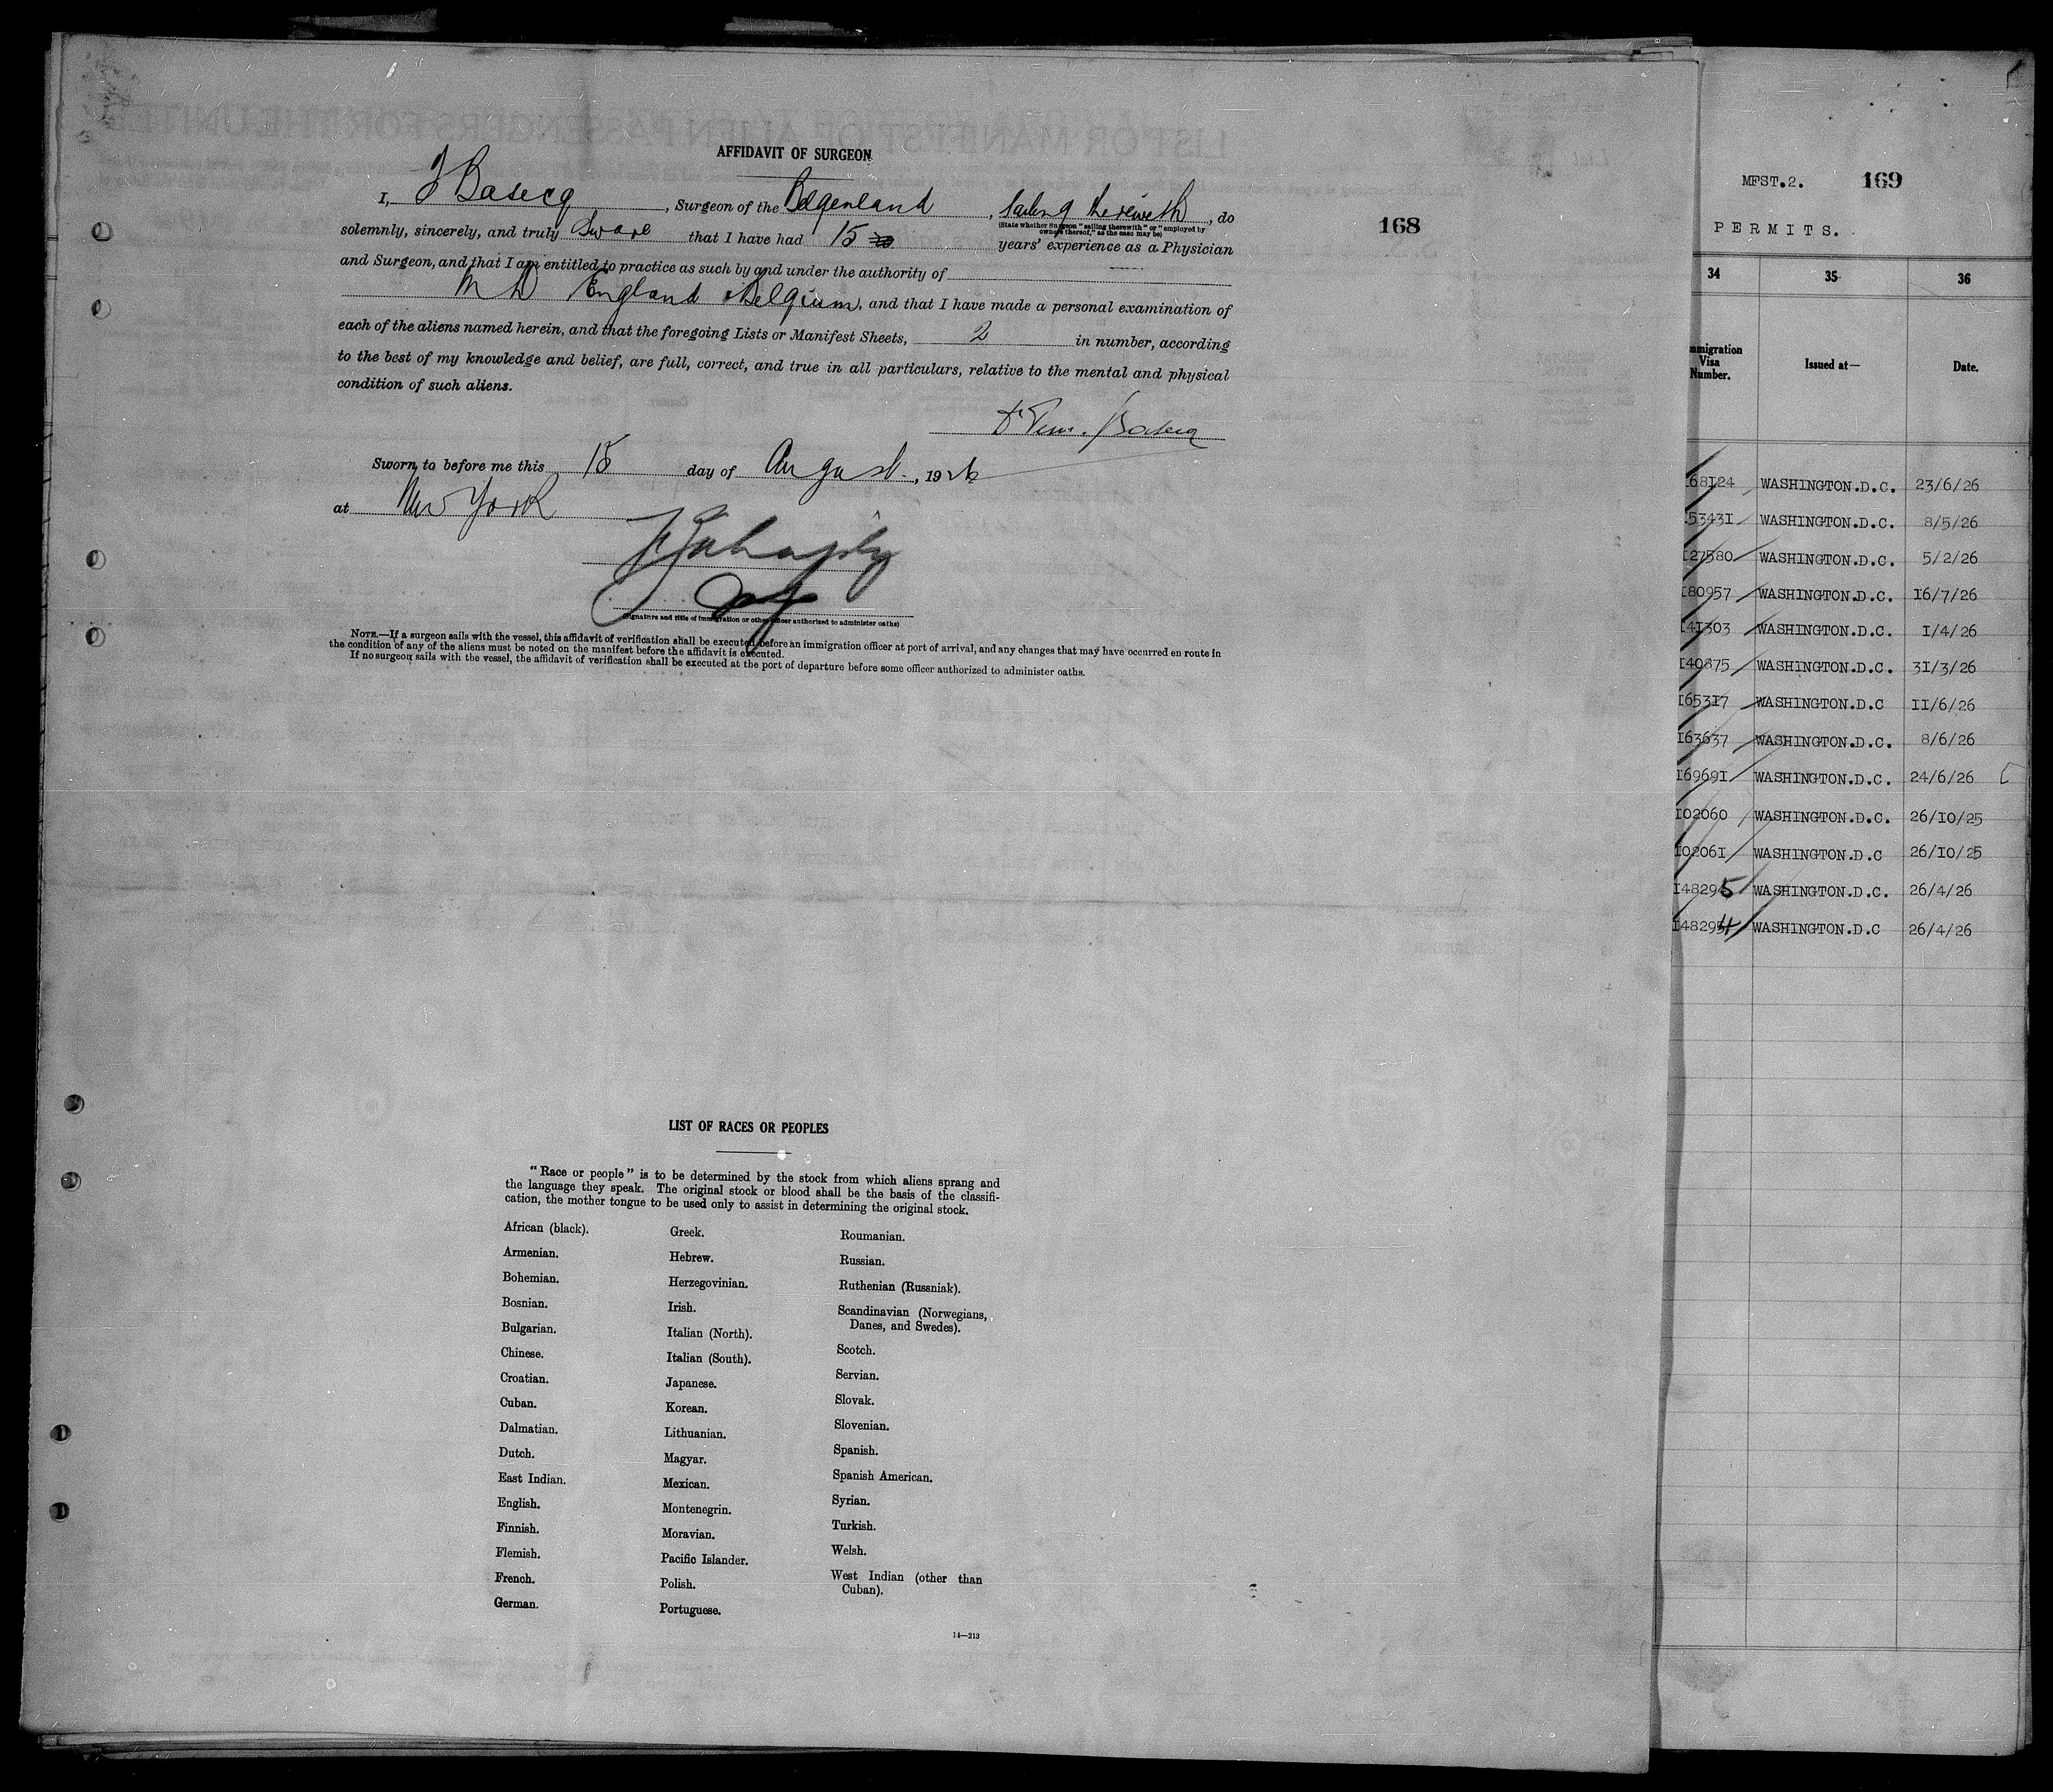 AFFIDAVIT OF SURGEON
I, J Basecq, Surgeon of the Belgenland, sailing therewith, do
(State whether Surgeon "sailing therewith" or "employed by
owners thereof," as the case may be)
solemnly, sincerely, and truly Sware that I have had 15 years' experience as a Physician
and Surgeon, and that I am entitled to practice as such by and under the authority of
M D England Belgium, and that I have made a personal examination of
each of the aliens named herein, and that the foregoing Lists or Manifest Sheets, 2 in number, according
to the best of my knowledge and belief, are full, correct, and true in all particulars, relative to the mental and physical
condition of such aliens.
Basecq
Sworn to before me this 15 day of August, 1926
at New York
(Signature and title of immigration or other officer authorized to administer oaths)
NOTE.—If a surgeon sails with the vessel, this affidavit of verification shall be executed before an immigration officer at port of arrival, and any changes that may have occurred en route in
the condition of any of the aliens must be noted on the manifest before the affidavit is executed.
If no surgeon sails with the vessel, the affidavit of verification shall be executed at the port of departure before some officer authorized to administer oaths.
168
LIST OF RACES OR PEOPLES
"Race or people" is to be determined by the stock from which aliens sprang and
the language they speak. The original stock or blood shall be the basis of the classifi-
cation, the mother tongue to be used only to assist in determining the original stock.
African (black).
Armenian.
Bohemian.
Bosnian.
Bulgarian.
Chinese.
Croatian.
Cuban.
Dalmatian.
Dutch.
East Indian.
English.
Finnish.
Flemish.
French.
German.
Greek.
Hebrew.
Herzegovinian.
Irish.
Italian (North).
Italian (South).
Japanese.
Korean.
Lithuanian.
Magyar.
Mexican.
Montenegrin.
Moravian.
Pacific Islander.
Polish.
Portuguese.
Roumanian.
Russian.
Ruthenian (Russniak).
Scandinavian (Norwegians,
Danes, and Swedes).
Scotch.
Servian.
Slovak.
Slovenian.
Spanish.
Spanish American.
Syrian.
Turkish.
Welsh.
West Indian (other than
Cuban).
14—213
MFST.2. 169
PERMITS.
34 35 36
Immigration
Visa
Number. Issued at— Date.
I68124 WASHINGTON.D.C. 23/6/26
I5343I WASHINGTON.D.C. 8/5/26
I27580 WASHINGTON.D.C. 5/2/26
I80957 WASHINGTON.D.C. I6/7/26
I41303 WASHINGTON.D.C. I/4/26
I40875 WASHINGTON.D.C. 3I/3/26
I653I7 WASHINGTON.D.C II/6/26
I63637 WASHINGTON.D.C. 8/6/26
I6969I WASHINGTON.D.C. 24/6/26
I02060 WASHINGTON.D.C. 26/10/25
I0206I WASHINGTON.D.C 26/10/25
I48295 WASHINGTON.D.C. 26/4/26
I48294 WASHINGTON.D.C 26/4/26